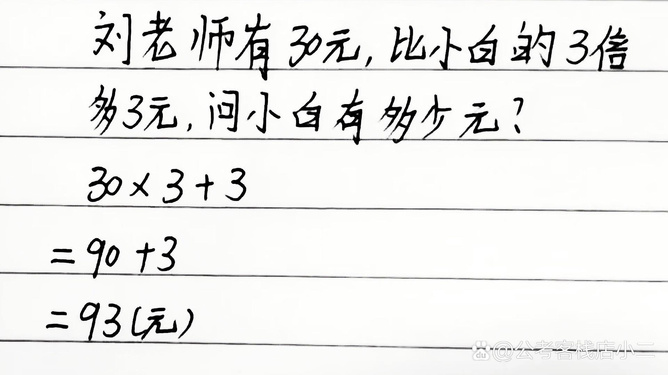 刘老师有30元,比小白的3倍
多3元,问小白有多少元?
30×3+3
=90+3
=93(元)
@公考客栈店小二